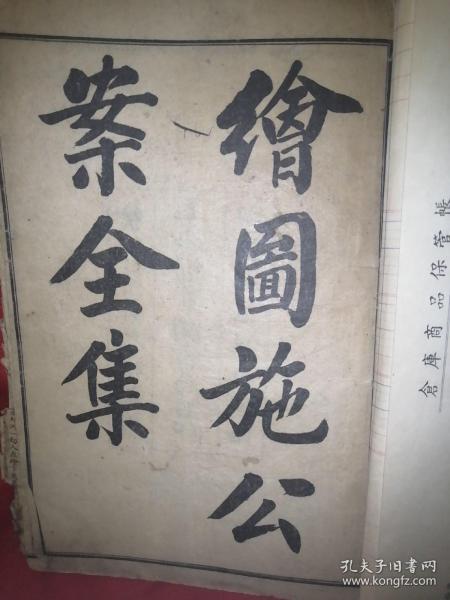 繪圖施公
案全集
倉庫商品保管帳
孔夫子旧书网
www.kongfz.com